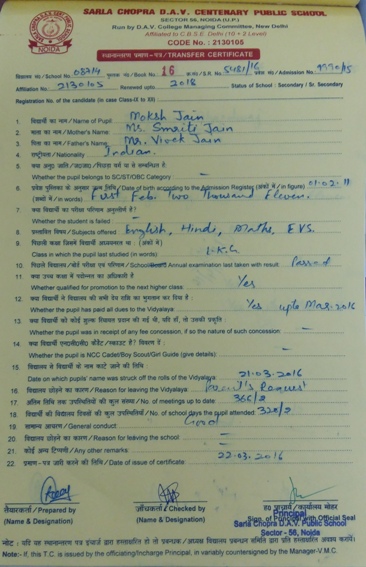 SARLA CHOPRA D.A.V. CENTENARY PUBLIC SCHOOL
SECTOR 56, NOIDA (U.P.)
Run by D.A.V. College Managing Committee, New Delhi
Affiliated to C.B.S.E Delhi (10 + 2 Level)
CODE No. : 2130105
NOIDA
स्थानान्तरण प्रमाण - पत्र / TRANSFER CERTIFICATE
विद्यालय नं0 / School No. 08714 पुस्तक नं0 / Book No. 16 क्र0 / S.R. No. 5481/16 प्रवेश नं0 / Admission No.
Affiliation No. 2130105 Renewed upto 2018 Status of School : Secondary / Sr. Secondary
Registration No. of the candidate (in case Class-IX to XII)
1. विद्यार्थी का नाम / Name of Pupil Moksh Jain
2. माता का नाम / Mother's Name Ms. Smriti Jain
3. पिता का नाम / Father's Name Mr. Vivek Jain
4. राष्ट्रीयता / Nationality Indian
5.
Whether the pupil belongs to SC/ST/OBC Category —
6. प्रवेश पुस्तिका के अनुसार जन्म तिथि / Date of birth according to the Admission Register (अंको में / in figure) 01.02.11
(अंको में / in words) First Feb. Two Thousand Eleven.
7. क्या विद्यार्थी का परीक्षा परिणाम अनुत्तीर्ण है ?
Whether the student is failed —
8. प्रस्तावित विषय / Subjects offered English, Hindi, Maths, EVS.
9. पिछली कक्षा जिसमें विद्यार्थी अध्ययनरत था : (अंको में)
Class in which the pupil last studied (in words)
10. पिछले विद्यालय / बोर्ड परीक्षा एवं परिणाम / School Annual examination last taken with result Passed
11. क्या उच्च कक्षा में पदोन्नत का अधिकारी है
Whether qualified for promotion to the next higher class Yes
12. क्या विद्यार्थी ने विद्यालय की सभी देय राशि का भुगतान कर दिया है :
Whether the pupil has paid all dues to the Vidyalaya Yes upto Mar-2016
13.
Whether the pupil was in receipt of any fee concession, if so the nature of such concession: —
14. क्या विद्यार्थी एनसीसी कैडेट / स्काउट है ? विवरण दें :
Whether the pupil is NCC Cadet/Boy Scout/Girl Guide (give details): —
15. विद्यालय से विद्यार्थी के नाम काटे जाने की तिथि
Date on which pupils' name was struck off the rolls of the Vidyalaya 21-03-2016
16. विद्यालय छोड़ने का कारण / Reason for leaving the Vidyalaya Request
17. अंतिम तिथि तक उपस्थितियों की कुल संख्या / No. of meetings up to date: 366/2
18. विद्यार्थी की विद्यालय दिवसों की कुल उपस्थितियाँ / No. of school days the pupil attended 320/2
19. सामान्य आचरण / General conduct Good
20. विद्यालय छोड़ने का कारण / Reason for leaving the school —
21. कोई अन्य टिप्पणी / Any other remarks: —
22. प्रमाण - पत्र जारी करने की तिथि / Date of issue of certificate: 22.03.2016
तैयारकर्ता / Prepared by
(Name & Designation)
जाँचकर्ता / Checked by
(Name & Designation)
Principal
Sign. of Principal with Official Seal
Sarla Chopra D.A.V. Public School
Sector - 56, Noida
Note:- If, this T.C. is issued by the officiating/Incharge Principal, in variably countersigned by the Manager-V.M.C.